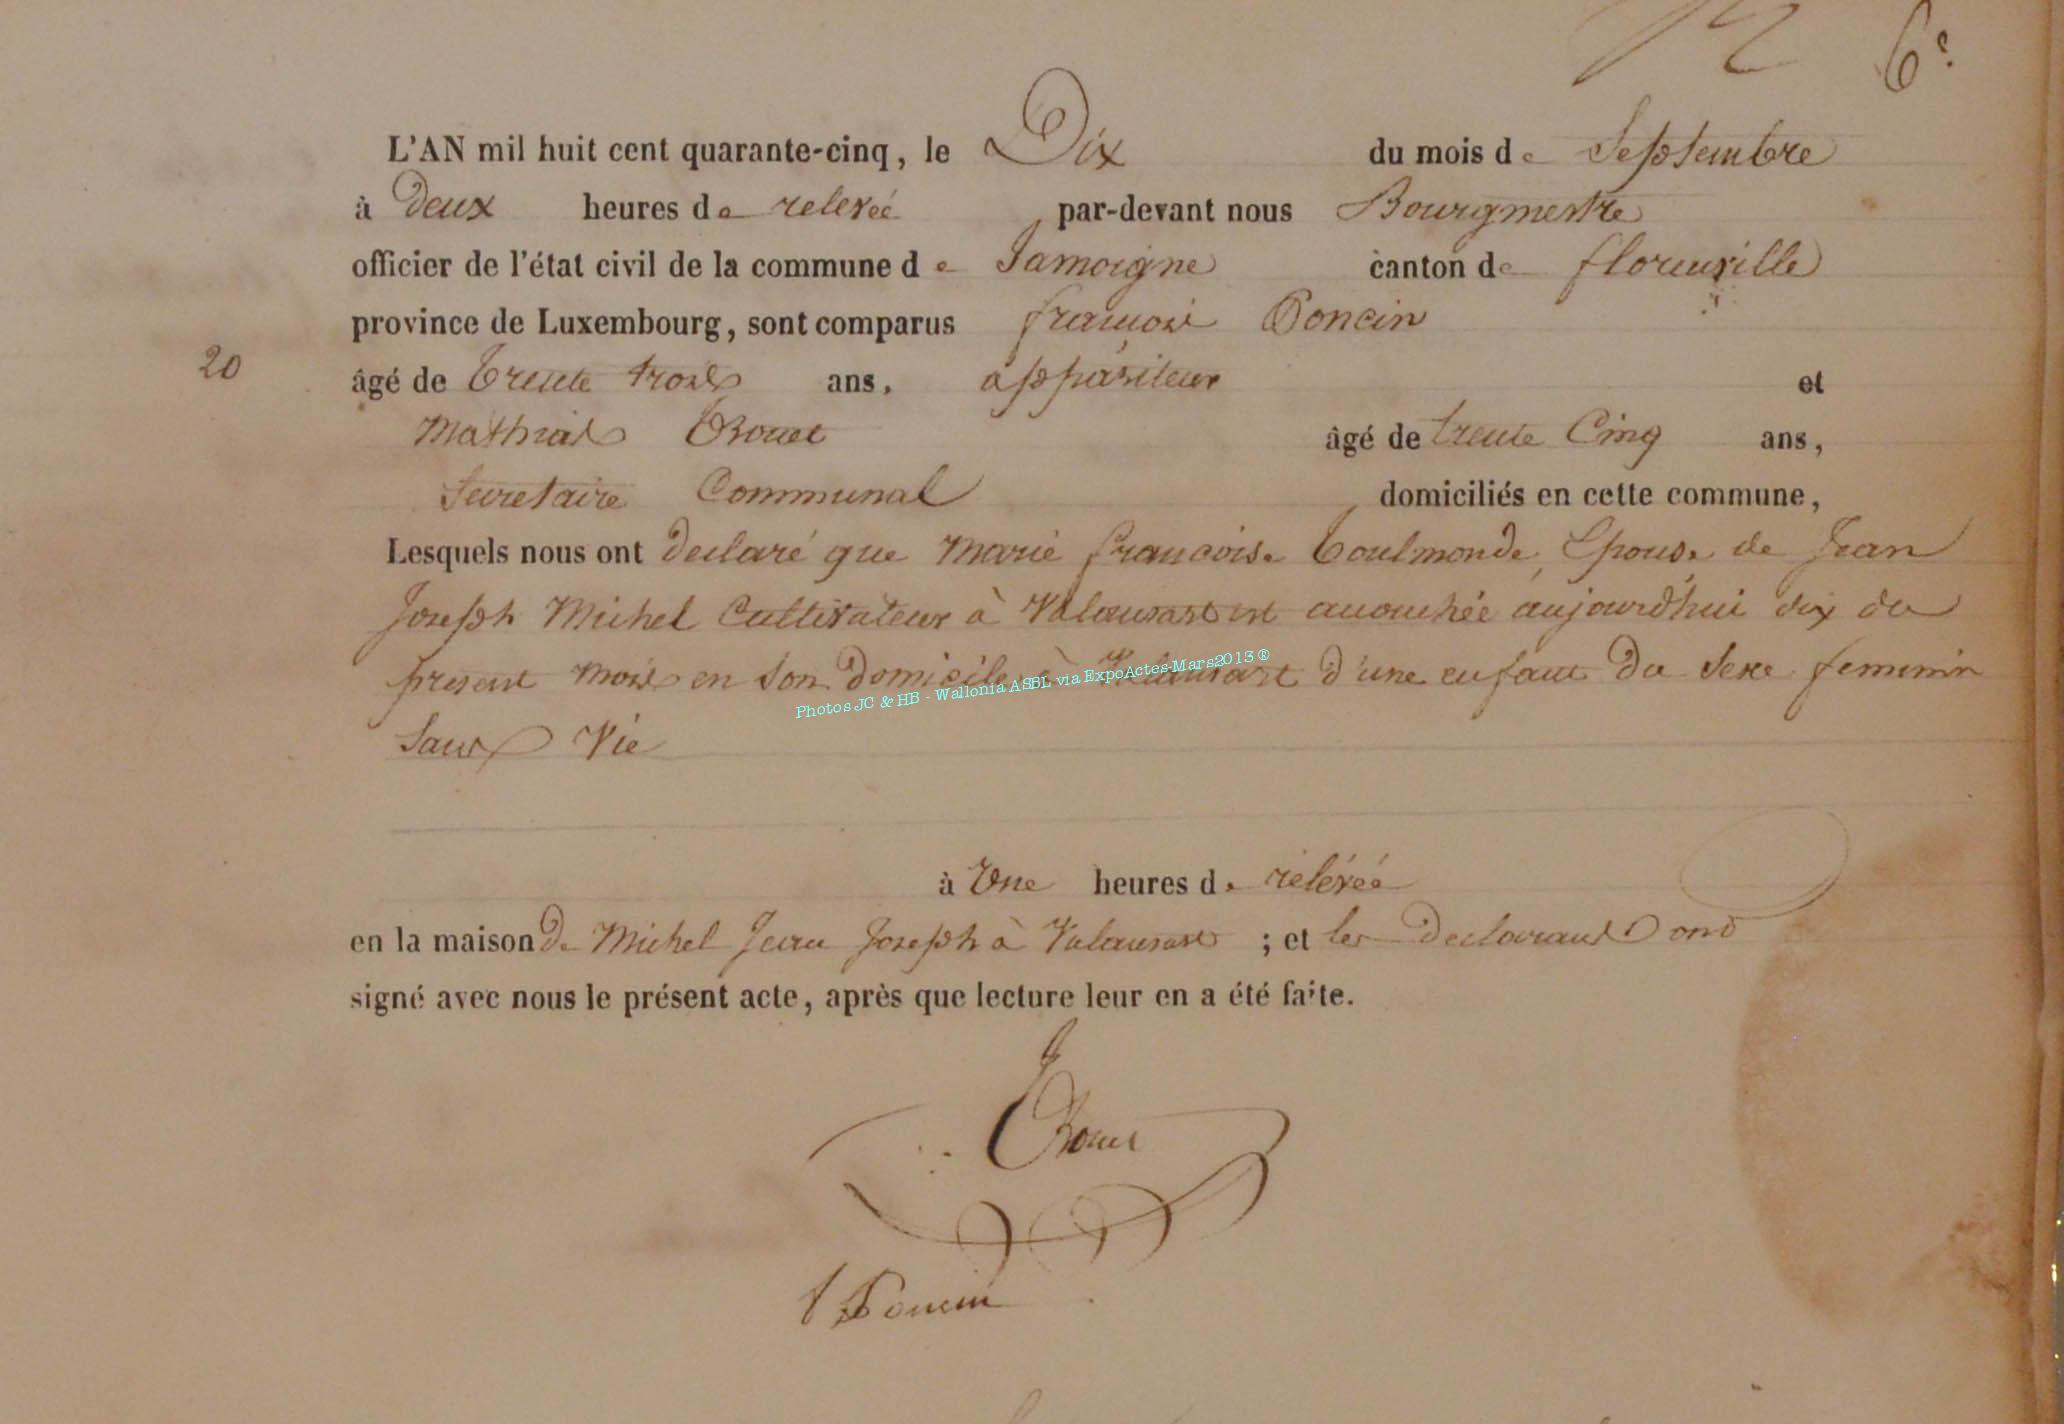 6e
L'AN mil huit cent quarante-cinq, le Dix du mois de Septembre
à deux heures de relevée par-devant nous Bourgmestre
officier de l'état civil de la commune de Jamoigne canton de florenville
province de Luxembourg, sont comparus françois Poncin
20 âgé de trente trois ans, appariteur et
Mathias âgé de trente Cinq ans,
Secretaire Communal domiciliés en cette commune,
Lesquels nous ont declaré que Marie francoise Toulmonde, Epouse de Jean
Joseph Michel Cultivateur à Valansart est accouchée aujourd'hui dix du
present mois en son domicile à Valansart d'une enfant du sexe feminin
Sans Vie
Photos JC & HB - Wallonia ASBL via ExpoActes-Mars2013 ®
à Une heures de relévée
en la maison de Michel Jean Joseph à Valansart ; et les declarans ont
signé avec nous le présent acte, après que lecture leur en a été faite.
f Poncin